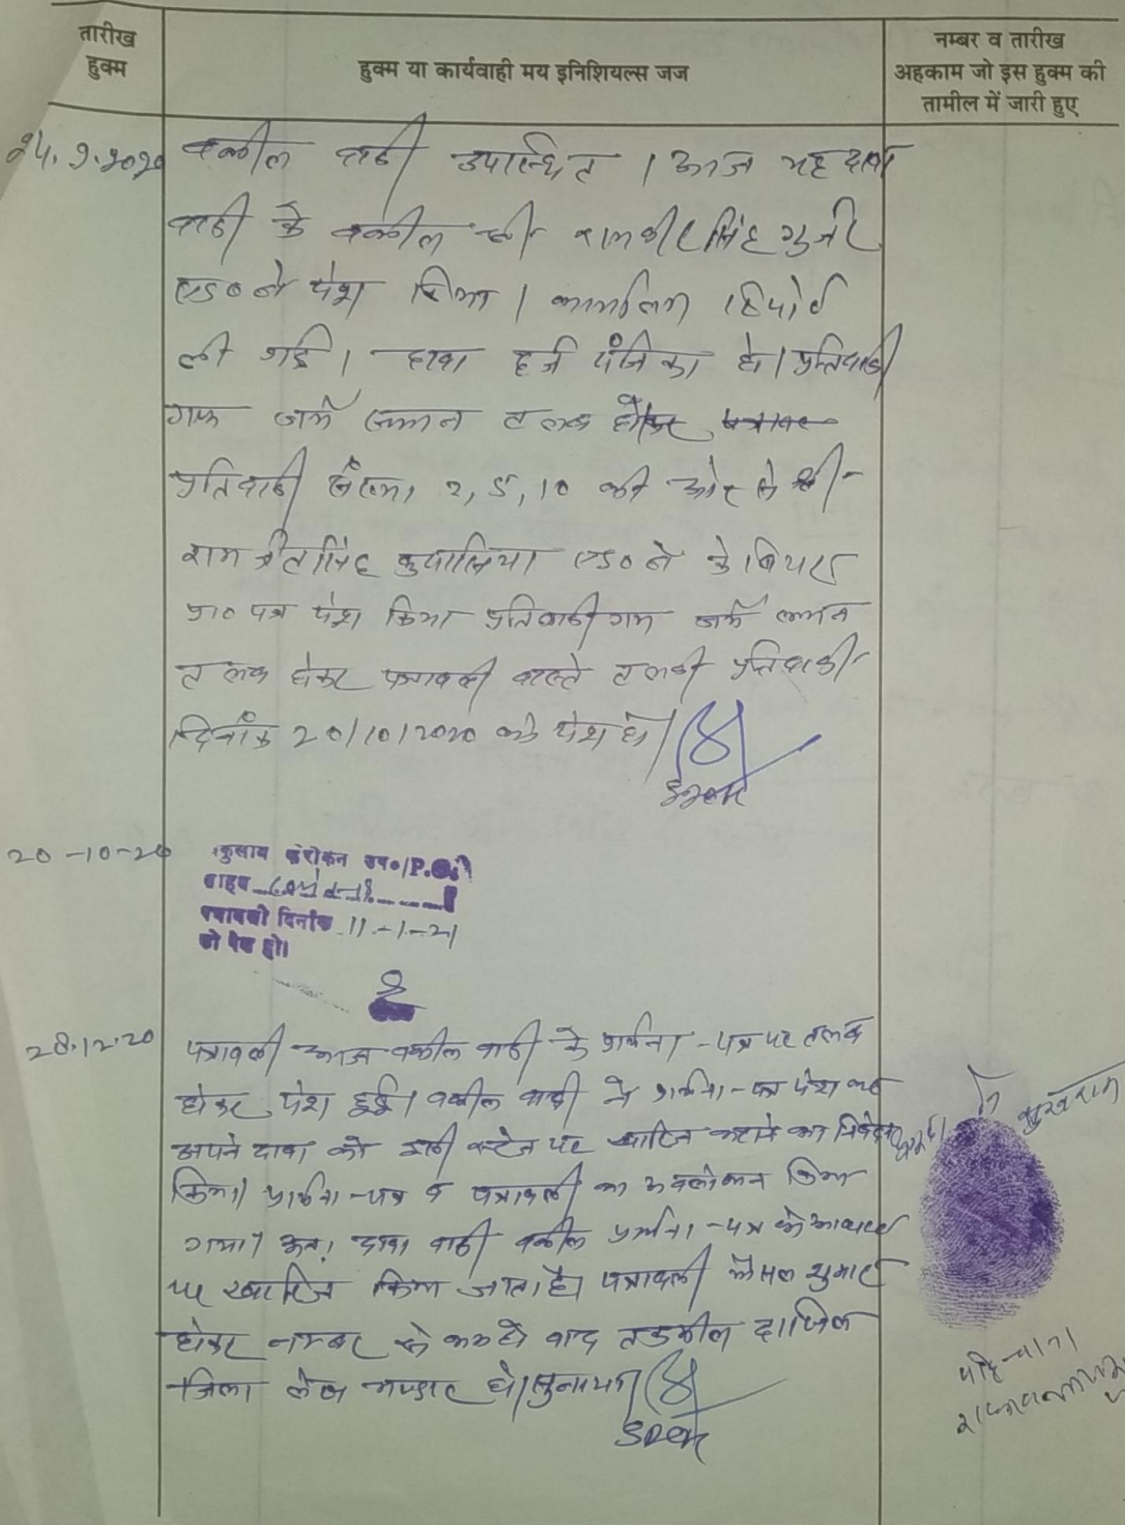 तारीख
हुक्म
हुक्म या कार्यवाही मय इनिशियल्स जज
नम्बर व तारीख
अहकाम जो इस हुक्म की
तामील में जारी हुए
24.9.2020
वकील वादी उपस्थित । आज यह दावा
वादी के वकील श्री रामवीर सिंह गुर्जर
एड० ने पेश किया । कार्यालय रिपोर्ट
ली गई । दावा दर्ज पंजिका हो । प्रतिवादी
गण जर्ये सम्मन तलब होकर
प्रतिवादी संख्या 2, 5, 10 की ओर से श्री
राम सिंह एड० ने केवियट
प्रा० पत्र पेश किया प्रतिवादी गण जर्ये सम्मन
तलब होकर पत्रावली वास्ते तलबी प्रतिवादी
दिनांक 20/10/2020 को पेश हो ।
SDOM
20-10-20
P.O.
साहब
पत्रावली दिनांक 11-1-21
को पेश हो।
28.12.20
पत्रावली आज वकील वादी के प्रार्थना-पत्र पर तलब
होकर पेश हुई। वकील वादी ने प्रार्थना-पत्र पेश कर
अपने दावा को इसी स्टेज पर खारिज कराने का निवेदन
किया। प्रार्थना-पत्र व पत्रावली का अवलोकन किया
गया। अतः दावा वादी वकील प्रार्थना-पत्र के आधार
पर खारिज किया जाता है। पत्रावली फैसल शुमार
होकर नम्बर से कम हो बाद तकमील दाखिल
जिला लेख भण्डार हो। सुनाया